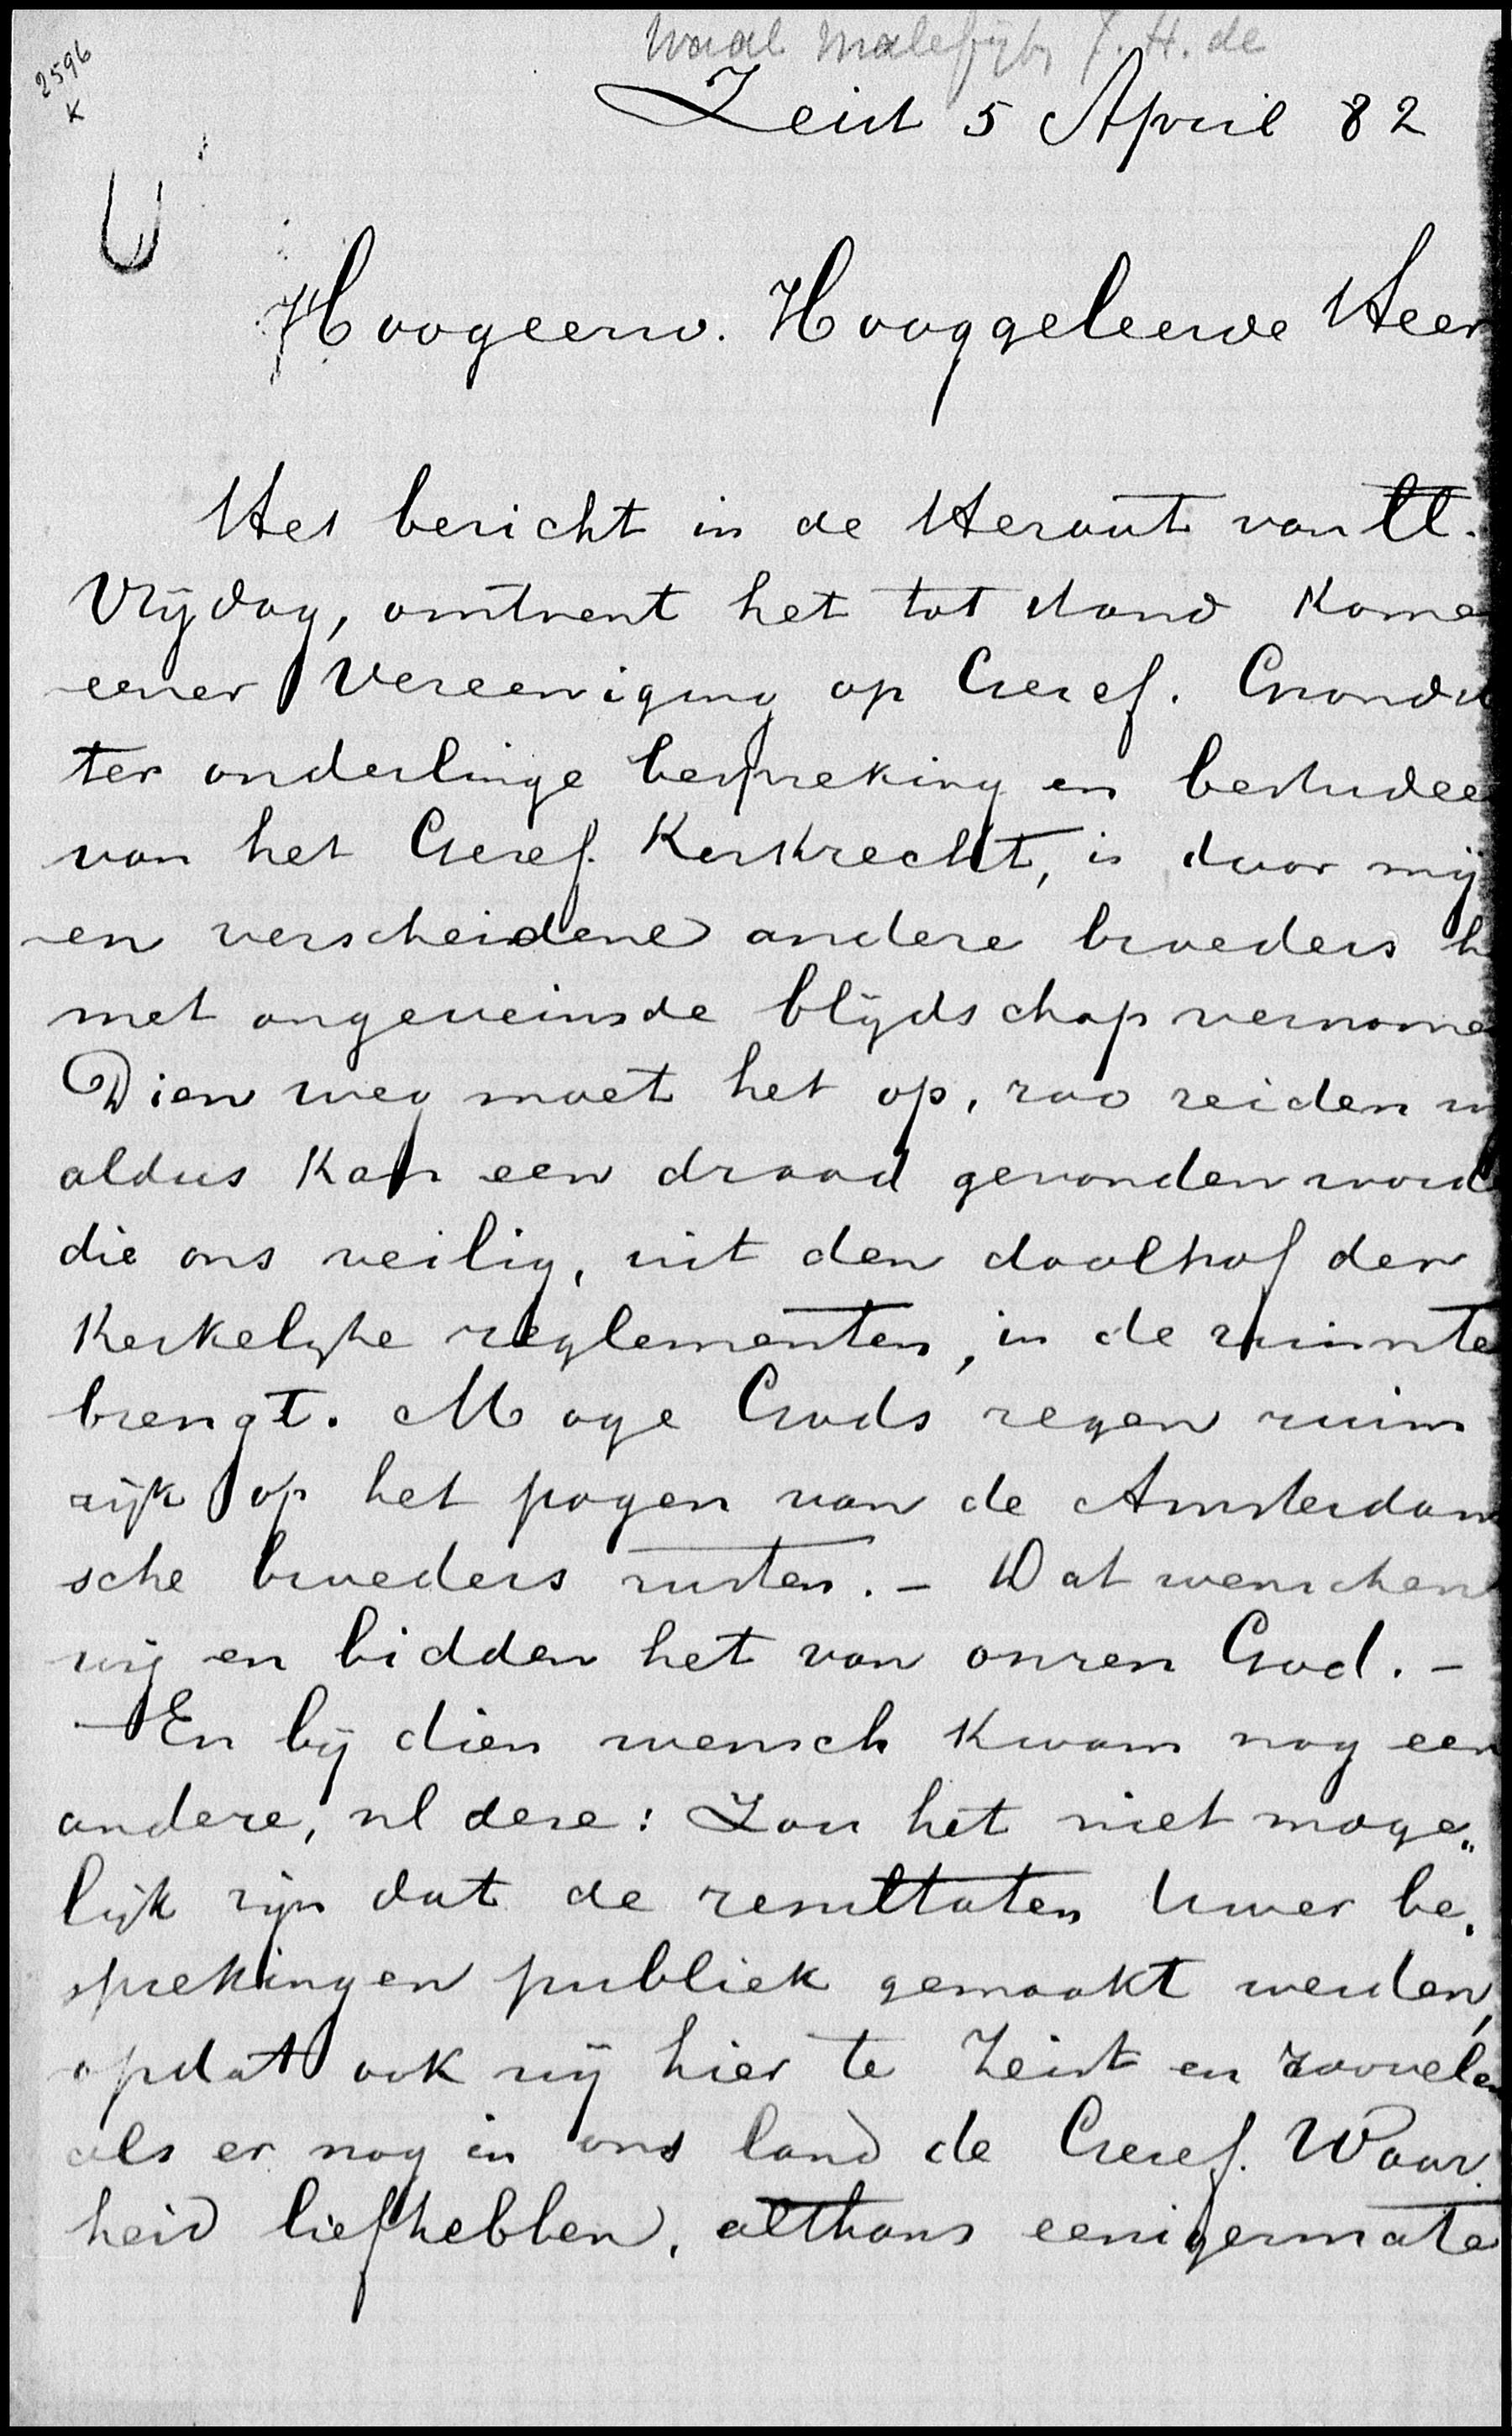 Waal Malefijt, J. H. de
2596
K
Zeist 5 April 82
Hoogeerw. Hooggeleerde Heer
Het bericht in de Heraut van ll.
Vrijdag, omtrent het tot stand kome
eener Vereeniging op Geref. Gronds
ter onderlinge bespreking en bestudee
van het Geref. Kerkrecht, is door mij
en verscheidene andere broeders h
met ongeveinsde blijdschap vernome
Dien weg moet het op, zoo zeiden w
aldus kan een draad gevonden word
die ons veilig, uit den doolhof der
Kerkelijke reglementen, in de ruimte
brengt. Moge Gods zegen ruim
rijk op het pogen van de Amsterdam
sche broeders rusten. – Dat wenschen
wij en bidden het van onzen God. –
En bij dien wensch kwam nog een
andere, nl deze: Zou het niet moge„
lijk zijn dat de resultaten Uwer be„
sprekingen publiek gemaakt werden,
opdat ook wij hier te Zeist en zoovelen
als er nog in ons land de Geref. Waar„
heid liefhebben, althans eenigermate